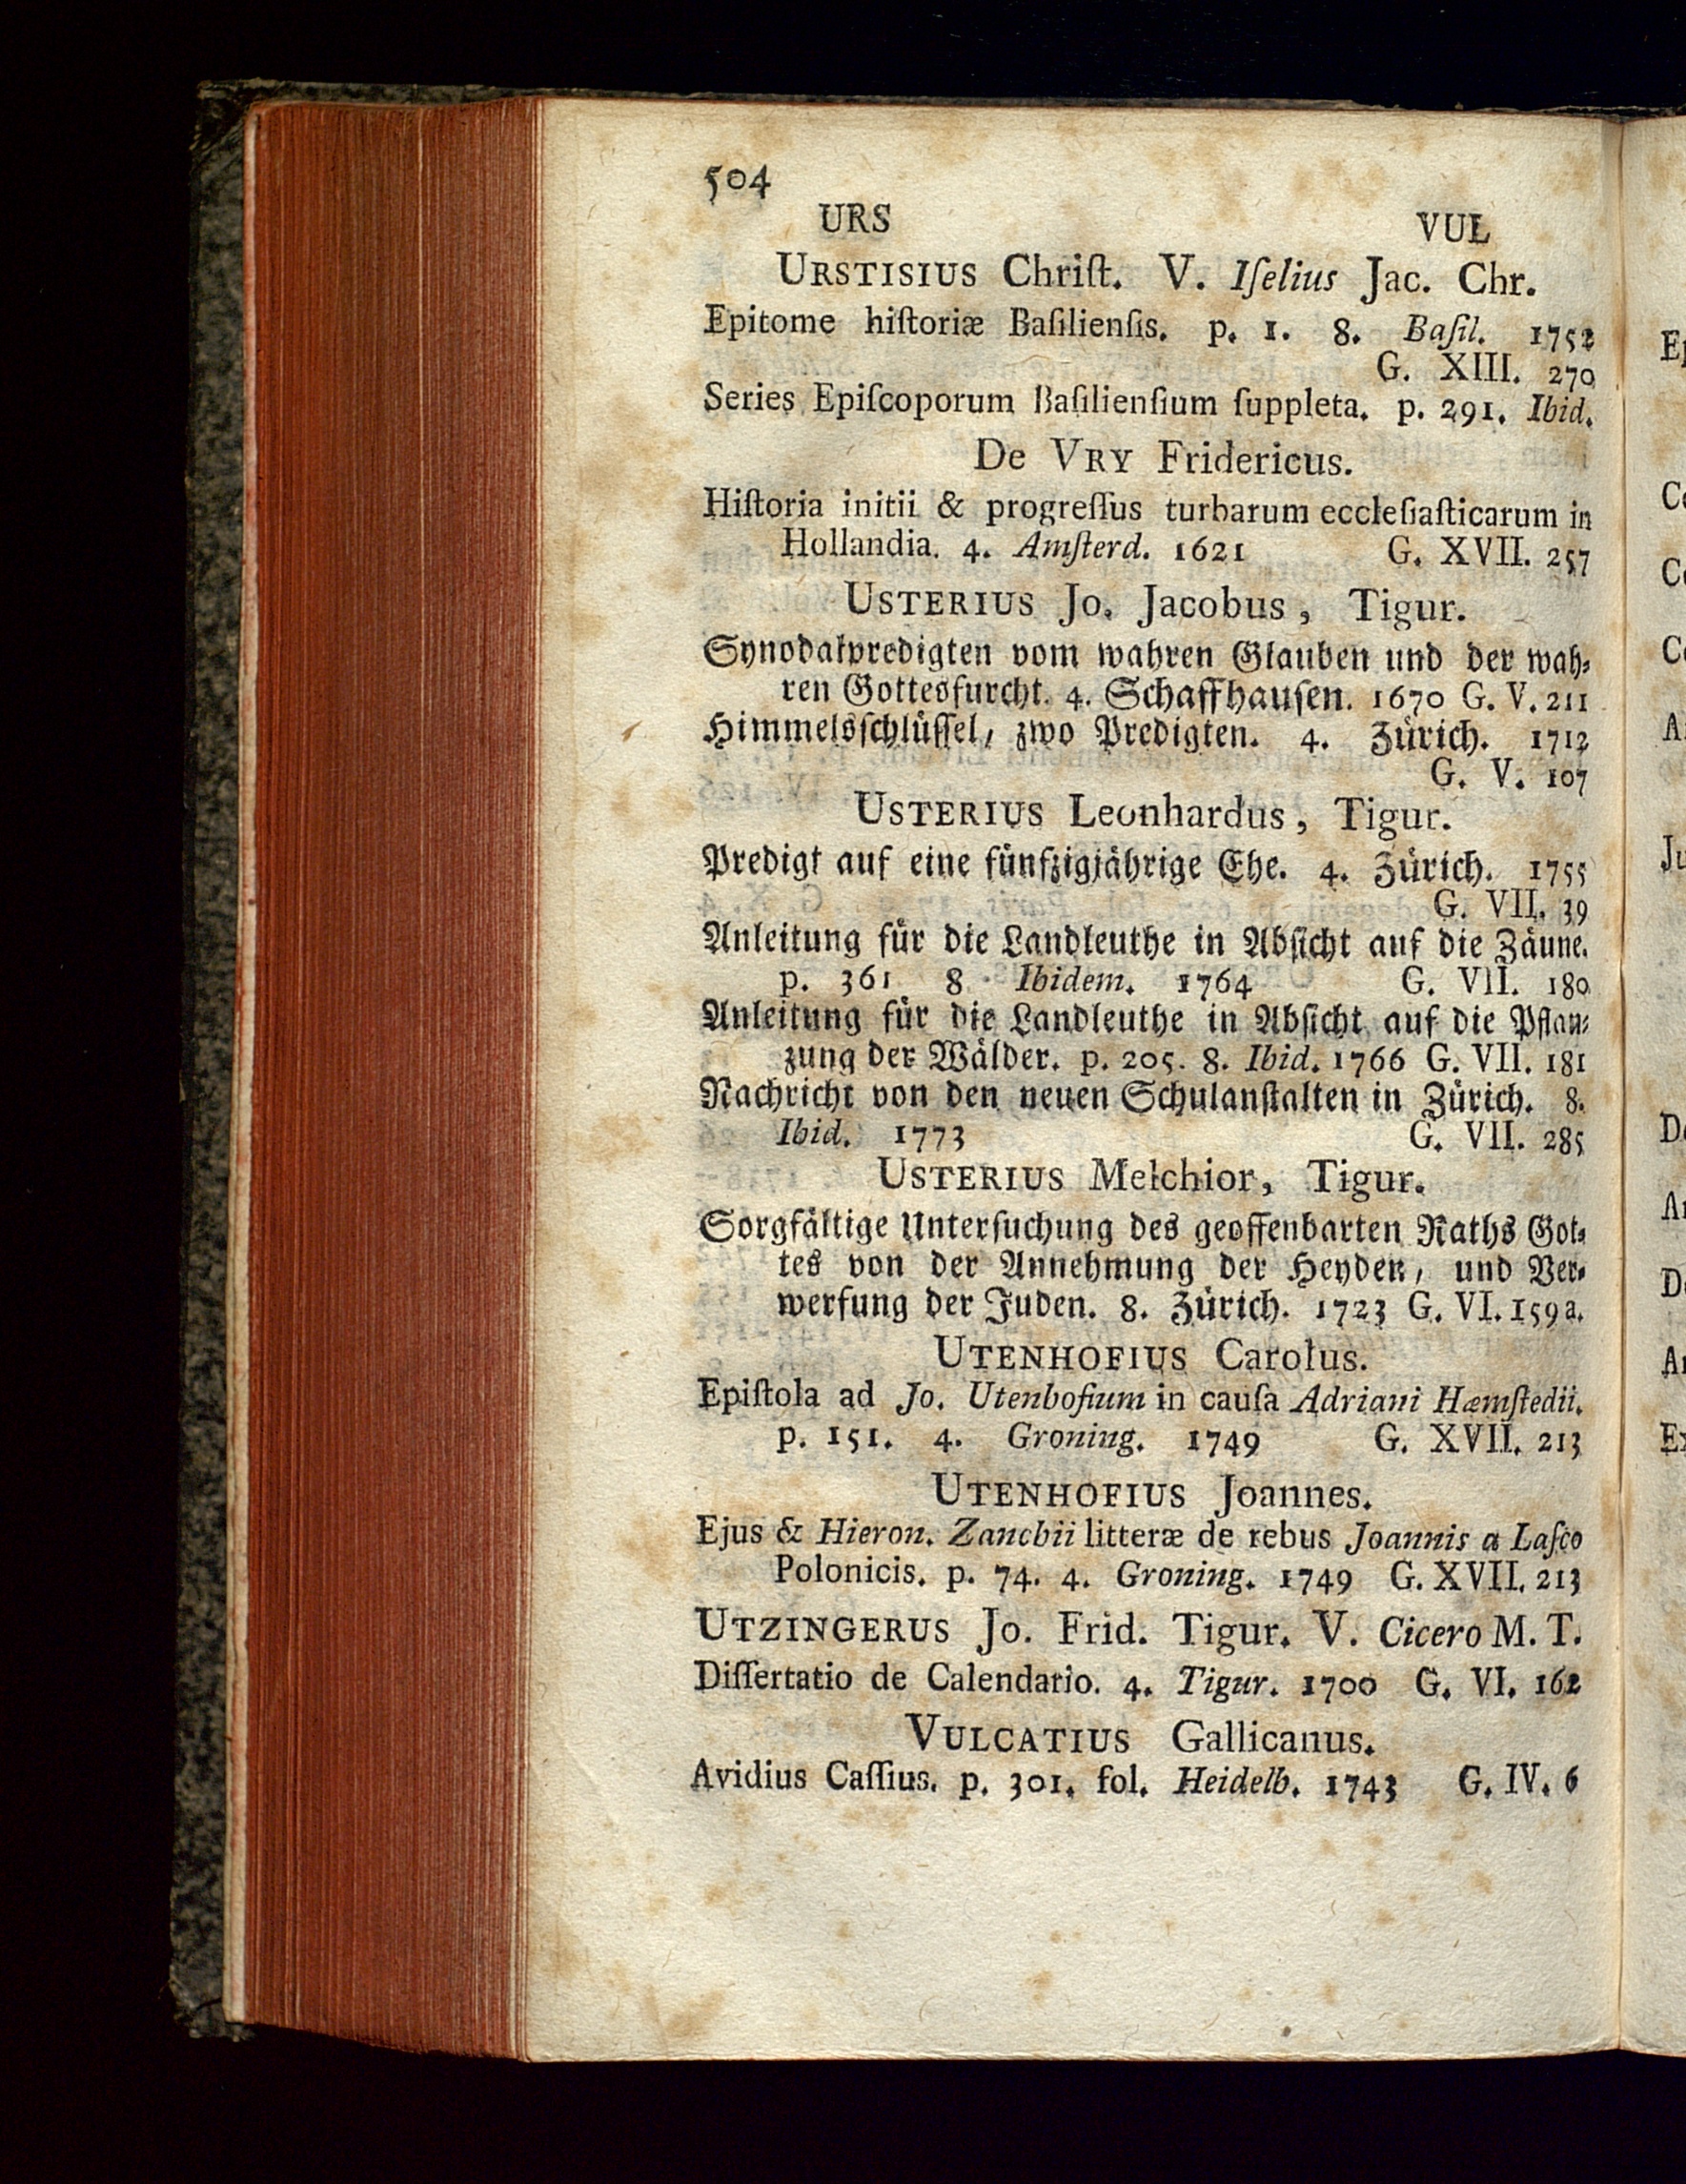 504
URS VUL
URSTISIUS Chriſt. V. Iſelius Jac. Chr.
Epitome hiſtoriæ Baſilienſis. p. 1. 8. Baſil. 1752
G. XIII. 270
Series Epiſcoporum Baſilienſium ſuppleta. p. 291. Ibid.
De VRY Fridericus.
Hiſtoria initii & progreſſus turbarum eccleſiaſticarum in
Hollandia. 4. Amſterd. 1621 G. XVII. 257
USTERIUS Jo. Jacobus, Tigur.
Synodalpredigten vom wahren Glauben und der wah⸗
ren Gottesfurcht. 4. Schaffhauſen. 1670 G. V. 211
Himmelsſchlüſſel, zwo Predigten. 4. Zürich. 1712
G. V. 107
USTERIUS Leonhardus, Tigur.
Predigt auf eine fünfzigjährige Ehe. 4. Zürich. 1755
G. VII. 39
Anleitung für die Landleuthe in Abſicht auf die Zäune.
p. 361 8 Ibidem. 1764 G. VII. 180
Anleitung für die Landleuthe in Abſicht auf die Pflan⸗
zung der Wälder. p. 205. 8. Ibid. 1766 G. VII. 181
Nachricht von den neuen Schulanſtalten in Zürich. 8.
Ibid. 1773 G. VII. 285
USTERIUS Melchior, Tigur.
Sorgfältige Unterſuchung des geoffenbarten Raths Got⸗
tes von der Annehmung der Heyden, und Ver⸗
werfung der Juden. 8. Zürich. 1723 G. VI. 159a.
UTENHOFIUS Carolus.
Epiſtola ad Jo. Utenhofium in cauſa Adriani Hæmſtedii.
p. 151. 4. Groning. 1749 G. XVII. 213
UTENHOFIUS Joannes.
Ejus & Hieron. Zanchii litteræ de rebus Joannis a Laſco
Polonicis. p. 74. 4. Groning. 1749 G. XVII. 213
UTZINGERUS Jo. Frid. Tigur. V. Cicero M. T.
Diſſertatio de Calendario. 4. Tigur. 1700 G. VI. 162
VULCATIUS Gallicanus.
Avidius Caſſius. p. 301. fol. Heidelb. 1743 G. IV. 6